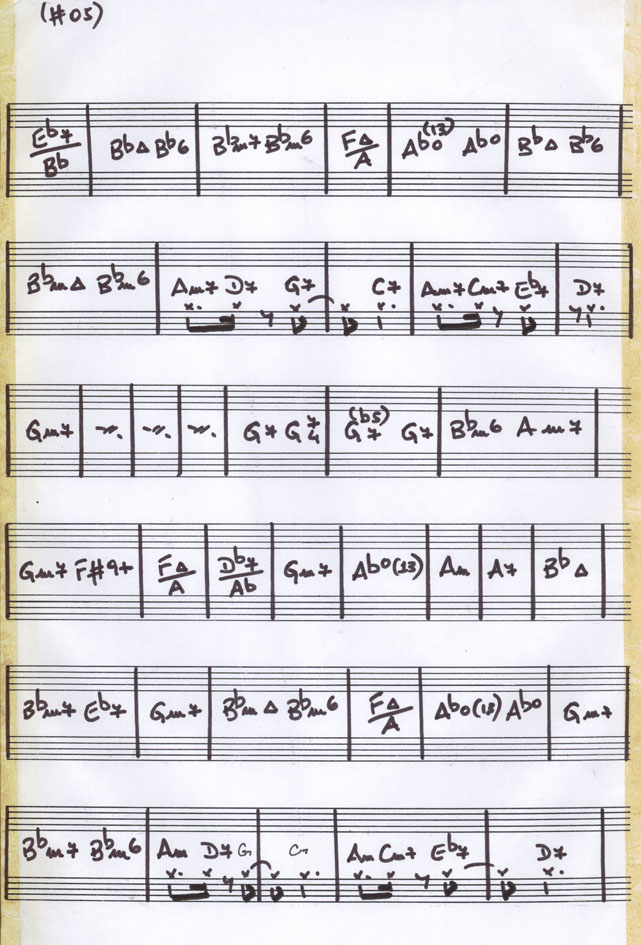 (#05)
E♭7/B♭ | B♭Δ B♭6 | B♭m7 B♭m6 | FΔ/A | A♭o(13) A♭o | B♭Δ B♭6
B♭mΔ B♭m6 | Am7 D7 G7 | C7 | Am7 Cm7 E♭7 | D7
Gm7 | 𝄎 | 𝄎 | 𝄎 | G7 G7/4 | G7(b5) G7 | B♭m6 Am7
Gm7 F#9+ | FΔ/A | D♭7/Ab | Gm7 | A♭o(13) | Am | A7 | B♭Δ
B♭m7 E♭7 | Gm7 | B♭mΔ B♭m6 | FΔ/A | A♭o(13) A♭o | Gm7
B♭m7 B♭m6 | Am D7 G | Am Cm7 E♭7 | D7